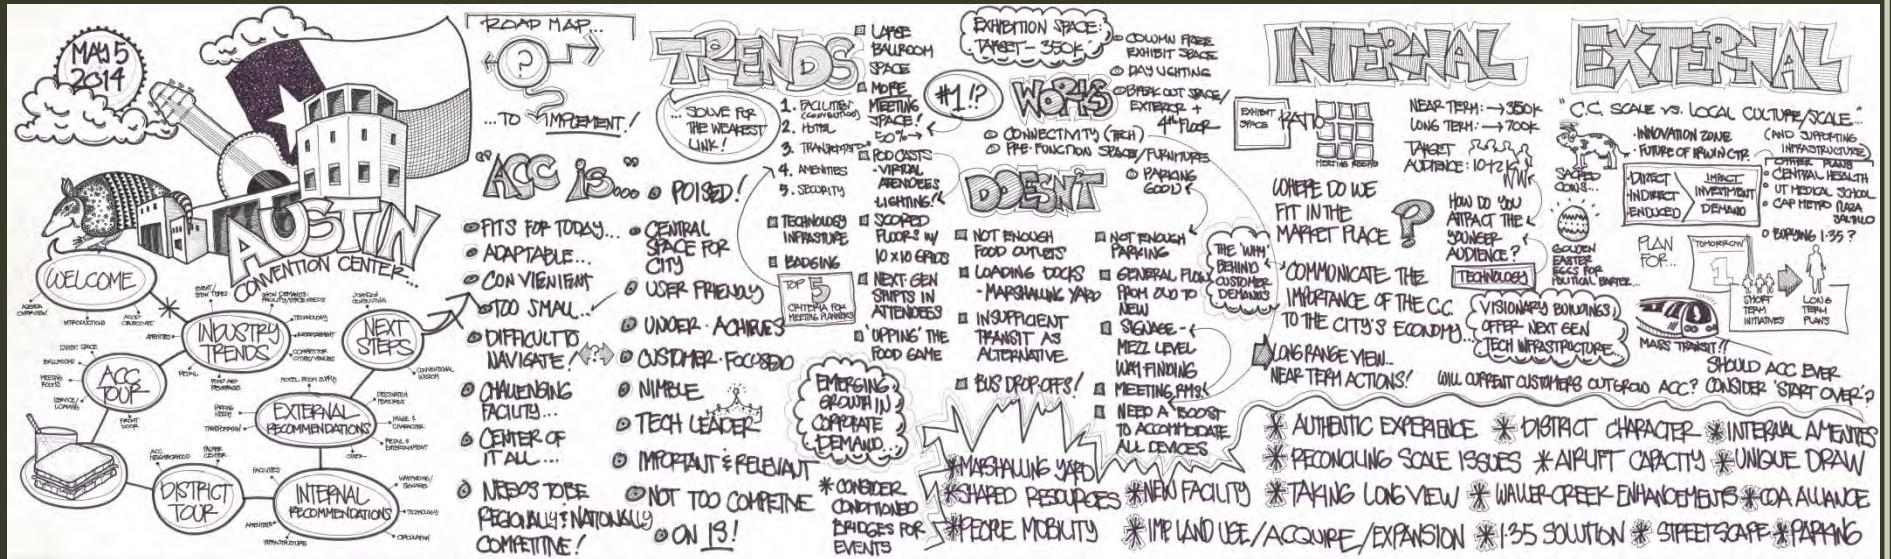 MAY 5
2014
AUSTIN
CONVENTION CENTER...
WELCOME
AGENDA
OVERVIEW
INTRODUCTIONS
INDUSTRY
TRENDS
TECHNOLOGY
AMENITIES
RETAIL
FOOD AND
BEVERAGE
COMPETITOR
CITIES/VENUES
NEXT
STEPS
CONVENTIONAL
WISDOM
ACC
TOUR
EXHIBIT SPACE
BALLROOMS
MEETING
ROOMS
SERVICE/
LOADING
FRONT
DOOR
EXTERNAL
RECOMMENDATIONS
HOTEL ROOM SUPPLY
DESTINATION
FEATURES
IMAGE &
CHARACTER
RETAIL &
ENTERTAINMENT
OTHER
TRANSPORTATION
PARKING
NEEDS
DISTRICT
TOUR
ACC
NEIGHBORHOOD
PALMER
CENTER
INTERNAL
RECOMMENDATIONS
FACILITIES
WAYFINDING/
SIGNAGE
TECHNOLOGY
CIRCULATION
INFRASTRUCTURE
AMENITIES
ROAD MAP...
?
...TO IMPLEMENT!
"ACC IS..."
FITS FOR TODAY...
ADAPTABLE...
CONVIENIENT
TOO SMALL...
DIFFICULT TO
NAVIGATE!
?
CHALLENGING
FACILITY...
CENTER OF
IT ALL...
NEEDS TO BE
REGIONALLY & NATIONALLY
COMPETITIVE!
POISED!
CENTRAL
SPACE FOR
CITY
USER FRIENDLY
UNDER-ACHIEVES
CUSTOMER-FOCUSED
NIMBLE
TECH LEADER
IMPORTANT & RELEVANT
NOT TOO COMPETIVE
ON 13!
TRENDS
...SOLVE FOR
THE WEAKEST
LINK!
1. FACILITIES
(CONVENTION)
2. HOTEL
3. TRANSPORTATION
4. AMENITIES
5. SECURITY
TECHNOLOGY
INFRASTURE
BADGING
TOP 5
CRITERIA FOR
MEETING PLANNERS
LARGE
BALLROOM
SPACE
MORE
MEETING
SPACE!
50%→
PODCASTS
- VIRTUAL
ATENDEES
LIGHTING!
SCORED
FLOORS W/
10 X 10 GRIDS
NEXT-GEN
SHIFTS IN
ATTENDEES
'UPPING' THE
FOOD GAME
EMERGING
GROWTH IN
CORPORATE
DEMAND...
* CONSIDER
CONDITIONED
BRIDGES FOR
EVENTS
EXHIBITION SPACE:
TARGET - 350K
#1!?
WORKS
COLUMN FREE
EXHIBIT SPACE
DAY LIGHTING
BREAK OUT SPACE/
EXTERIOR +
4TH FLOOR
CONNECTIVITY (TECH)
PRE-FUNCTION SPACE/FURNITURE
PARKING
GOOD
DOESN'T
NOT ENOUGH
FOOD OUTLETS
LOADING DOCKS
- MARSHALLING YARD
INSUFFICIENT
TRANSIT AS
ALTERNATIVE
BUS DROP-OFFS!
NOT ENOUGH
PARKING
GENERAL FLOW
FROM OLD TO
NEW
SIGNAGE -
MEZZ LEVEL
WAY FINDING
MEETING RMS
NEED A 'BOOST'
TO ACCOMMODATE
ALL DEVICES
THE 'WHY'
BEHIND
CUSTOMER
DEMANDS
INTERNAL
EXHIBIT
SPACE
RATIO
MEETING ROOMS
NEAR TERM: → 350K
LONG TERM: → 700K
TARGET
AUDIENCE: 10+2K
WHERE DO WE
FIT IN THE
MARKET PLACE
?
HOW DO YOU
ATTRACT THE
YOUNGER
AUDIENCE?
TECHNOLOGY
COMMUNICATE THE
IMPORTANCE OF THE C.C.
TO THE CITY'S ECONOMY...
VISIONARY BUILDINGS
OFFER NEXT GEN
TECH INFRASTRUCTURE...
LONG RANGE VIEW...
NEAR TERM ACTIONS!
WILL CURRENT CUSTOMERS OUTGROW ACC?
EXTERNAL
"C.C. SCALE VS. LOCAL CULTURE/SCALE...
(AND SUPPORTING
INFRASTRUCTURE)
· INNOVATION ZONE
· FUTURE OF IRWIN CTR.
SACRED
COWS...
· DIRECT
· INDIRECT
· ENDUCED
IMPACT
INVESTMENT
DEMAND
OTHER PLANS
CENTRAL HEALTH
UT MEDICAL SCHOOL
CAP METRO PLAZA
SALTILLO
BURYING I-35?
GOLDEN
EASTER
EGGS FOR
POLITICAL BARTER...
PLAN
FOR...
TOMORROW
1
SHORT
TERM
INITIATIVES
LONG
TERM
PLANS
MASS TRANSIT!!
SHOULD ACC EVER
CONSIDER 'START OVER'?
* MARSHALLING YARD
* SHARED RESOURCES
* PEOPLE MOBILITY
* NEW FACILITY
* IMP. LAND USE/ACQUIRE/EXPANSION
* AUTHENTIC EXPERIENCE * DISTRICT CHARACTER * INTERNAL AMENITIES
* RECONCILING SCALE ISSUES * AIRLIFT CAPACITY * UNIQUE DRAW
* TAKING LONG VIEW * WALLER-CREEK ENHANCEMENTS * COA ALLIANCE
* I-35 SOLUTION * STREETSCAPE * PARKING